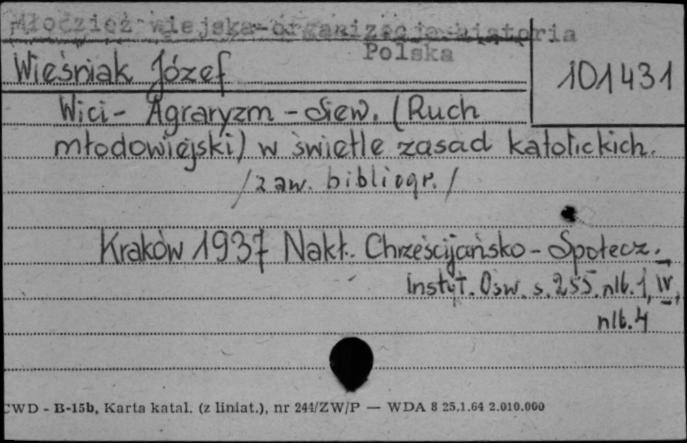 Młodzież wiejska-organizacje-historia
Polska
Wieśniak Józef
101431
Wici - Agraryzm - Siew. (Ruch
młodowiejski) w świetle zasad katolickich.
/zaw. bibliogr./
Kraków 1937 Nakł. Chrześcijańsko - Społecz.
Instyt. Ośw. s. 255, nlb. 1, IV,
nlb. 4
CWD - B-15b, Karta katal. (z liniat.), nr 244/ZW/P — WDA 8 25.1.64 2.010.000